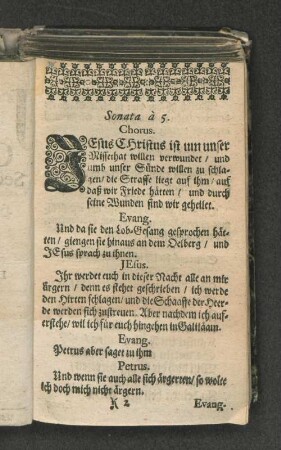 Sonata à 5.
Chorus.
JEsus CHristus ist um unser
Missethat willen verwundet / und
umb unser Sünde willen zu schla-
gen / die Straffe liegt auf ihm / auf
daß wir Friede hätten / und durch
seine Wunden sind wir geheilet.
Evang.
Und da sie den Lob-Gesang gesprochen hät-
ten / giengen sie hinaus an dem Oelberg / und
JEsus sprach zu ihnen.
JEsus.
Ihr werdet euch in dieser Nacht alle an mir
ärgern / denn es stehet geschrieben / ich werde
den Hirten schlagen / und die Schaaffe der Heer-
de werden sich zustreuen. Aber nachdem ich auf-
erstehe / will ich für euch hingehen in Galiläam.
Evang.
Petrus aber saget zu ihm
Petrus.
Und wenn sie auch alle sich ärgerten / so wolte
ich doch mich nicht ärgern.
K 2 Evang.